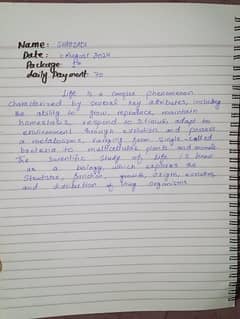 Name: SHAZADI
Date: August 2024
Package
daily Payment 70
Life is a complex phenomenon
characterized by several key attributes, including
the ability to grow, reproduce, maintain
homeostasis, respond to stimuli, adapt to
environment through evolution and possess
a metabolism, ranging from single-celled
bacteria to multicellular plants and animals
The scientific study of life is know
as a biology, which explores the
Structure, function, growth, origin, evolution
and distribution of living organisms